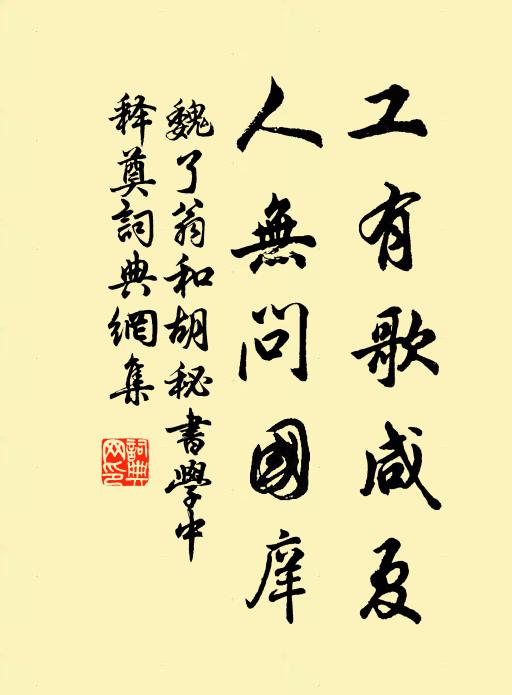 工有歌咸夏
人無問國庠
魏了翁和胡秘書學中
释奠詞典網集
詞典网印